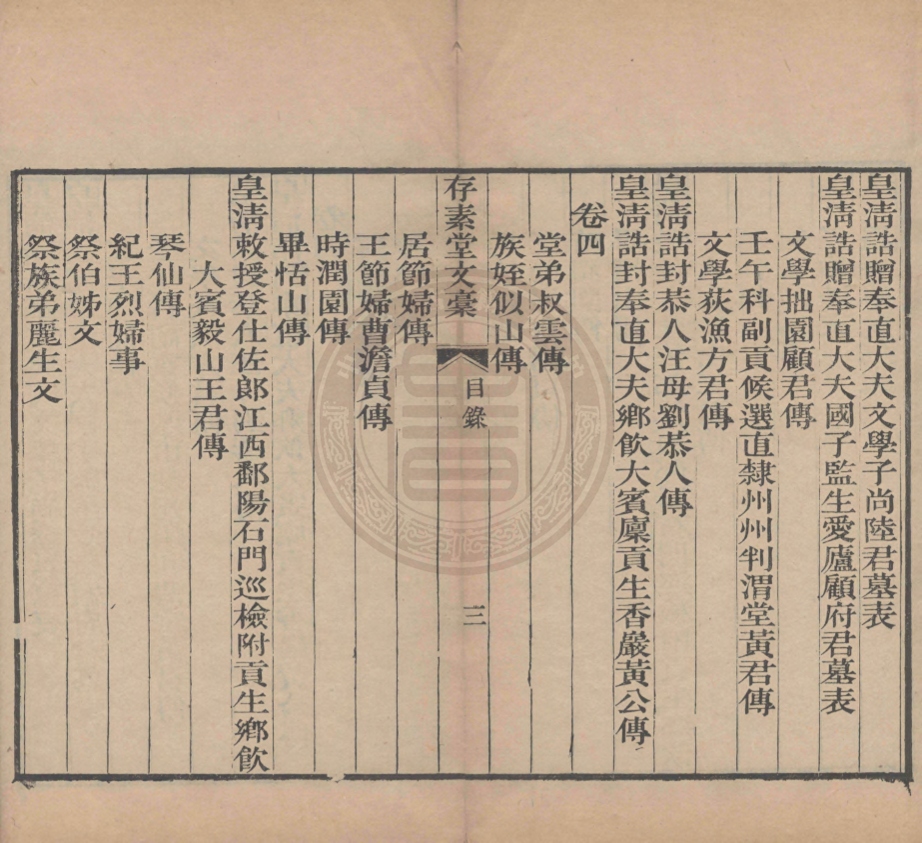 皇淸誥贈奉直大夫文學子尚陸君墓表
皇淸誥贈奉直大夫國子監生愛廬顧府君墓表
文學拙園顧君傳
壬午科副貢候選直隸州州判渭堂黃君傳
文學荻漁方君傳
皇淸誥封恭人汪母劉恭人傳
皇淸誥封奉直大夫鄉飲大賓廩貢生香嚴黃公傳
卷四
堂弟叔雲傳
族姪似山傳
存素堂文稾
目錄
三
居節婦傳
王節婦曹澹貞傳
時潤園傳
畢恬山傳
皇淸敕授登仕佐郎江西鄱陽石門巡檢附貢生鄉飲
大賓毅山王君傳
琴仙傳
紀王烈婦事
祭伯姊文
祭族弟麗生文